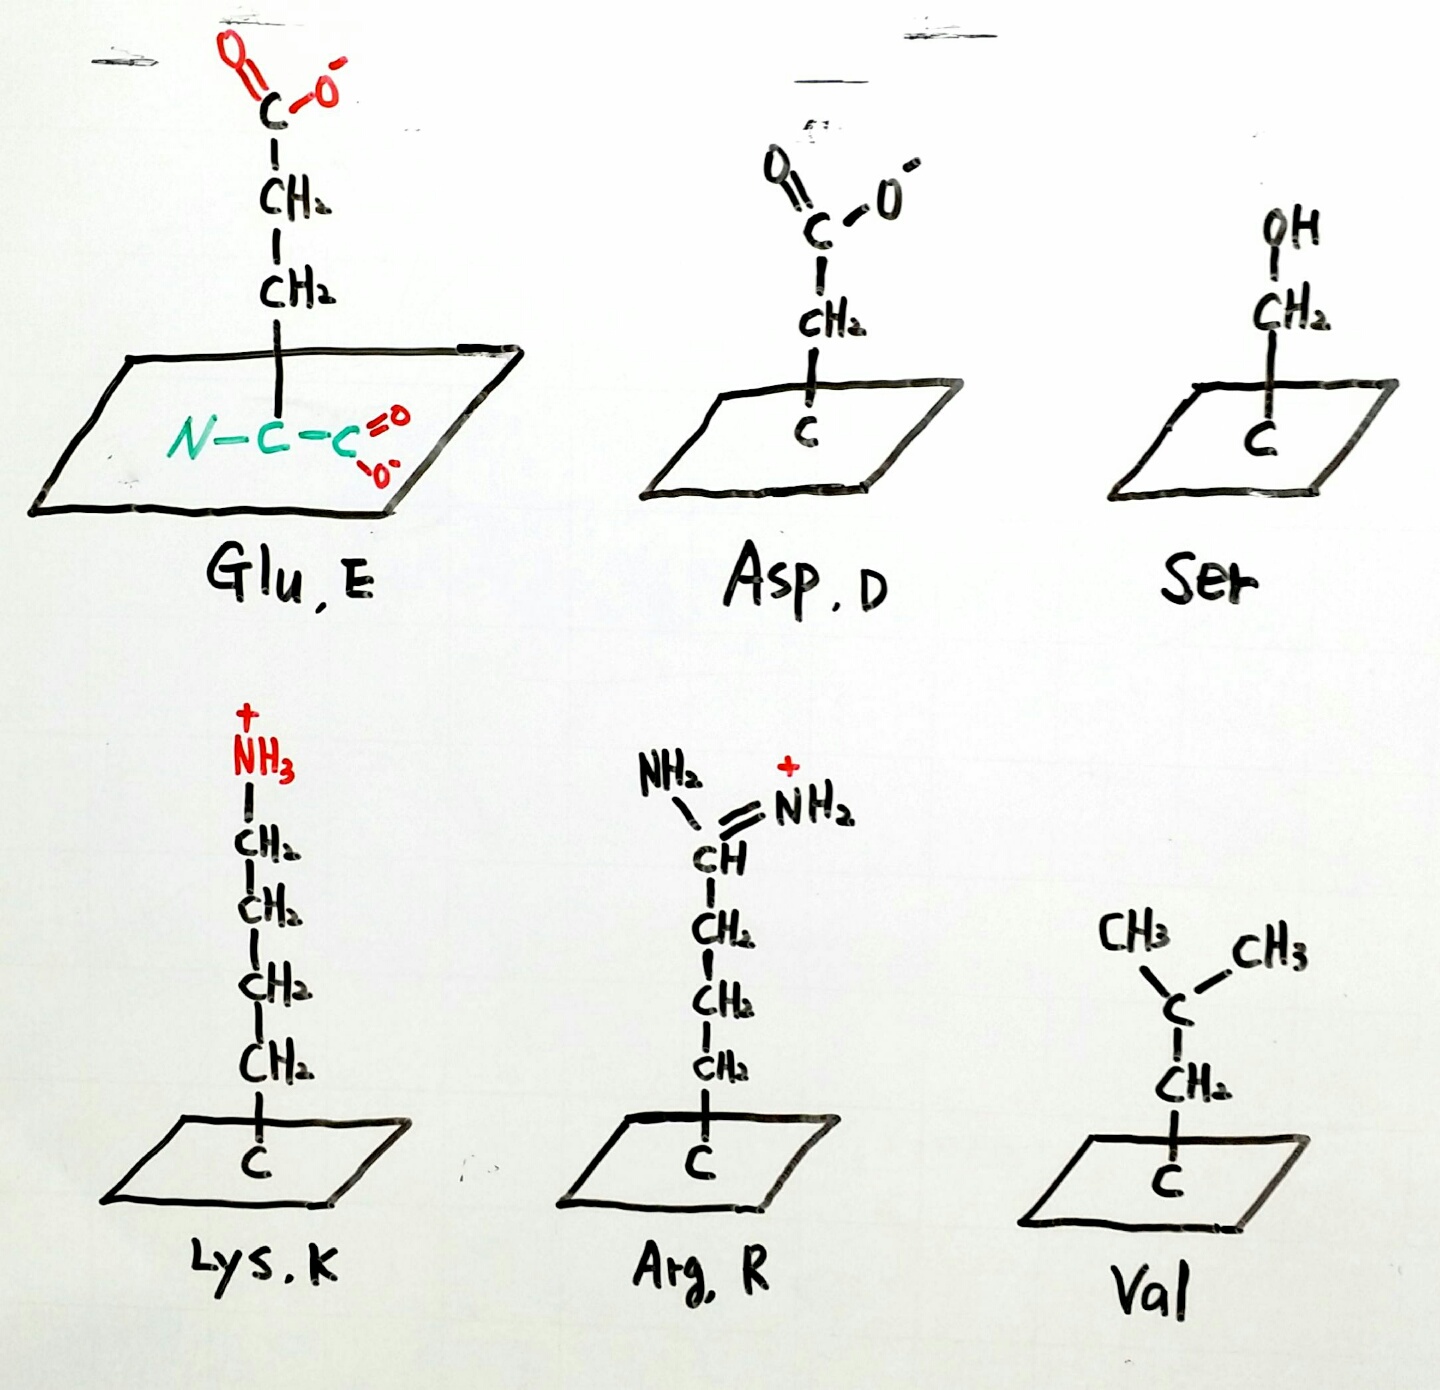 O O-
C
CH2
CH2
N-C-C=O
O-
Glu, E
O O-
C
CH2
C
Asp, D
OH
CH2
C
Ser
+
NH3
CH2
CH2
CH2
CH2
C
Lys, K
NH2 +
NH2
CH
CH2
CH2
CH2
C
Arg, R
CH3 CH3
C
CH2
C
Val